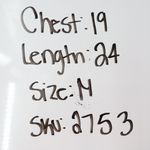 Chest: 19
Length: 24
Size: M
SKU: 2753